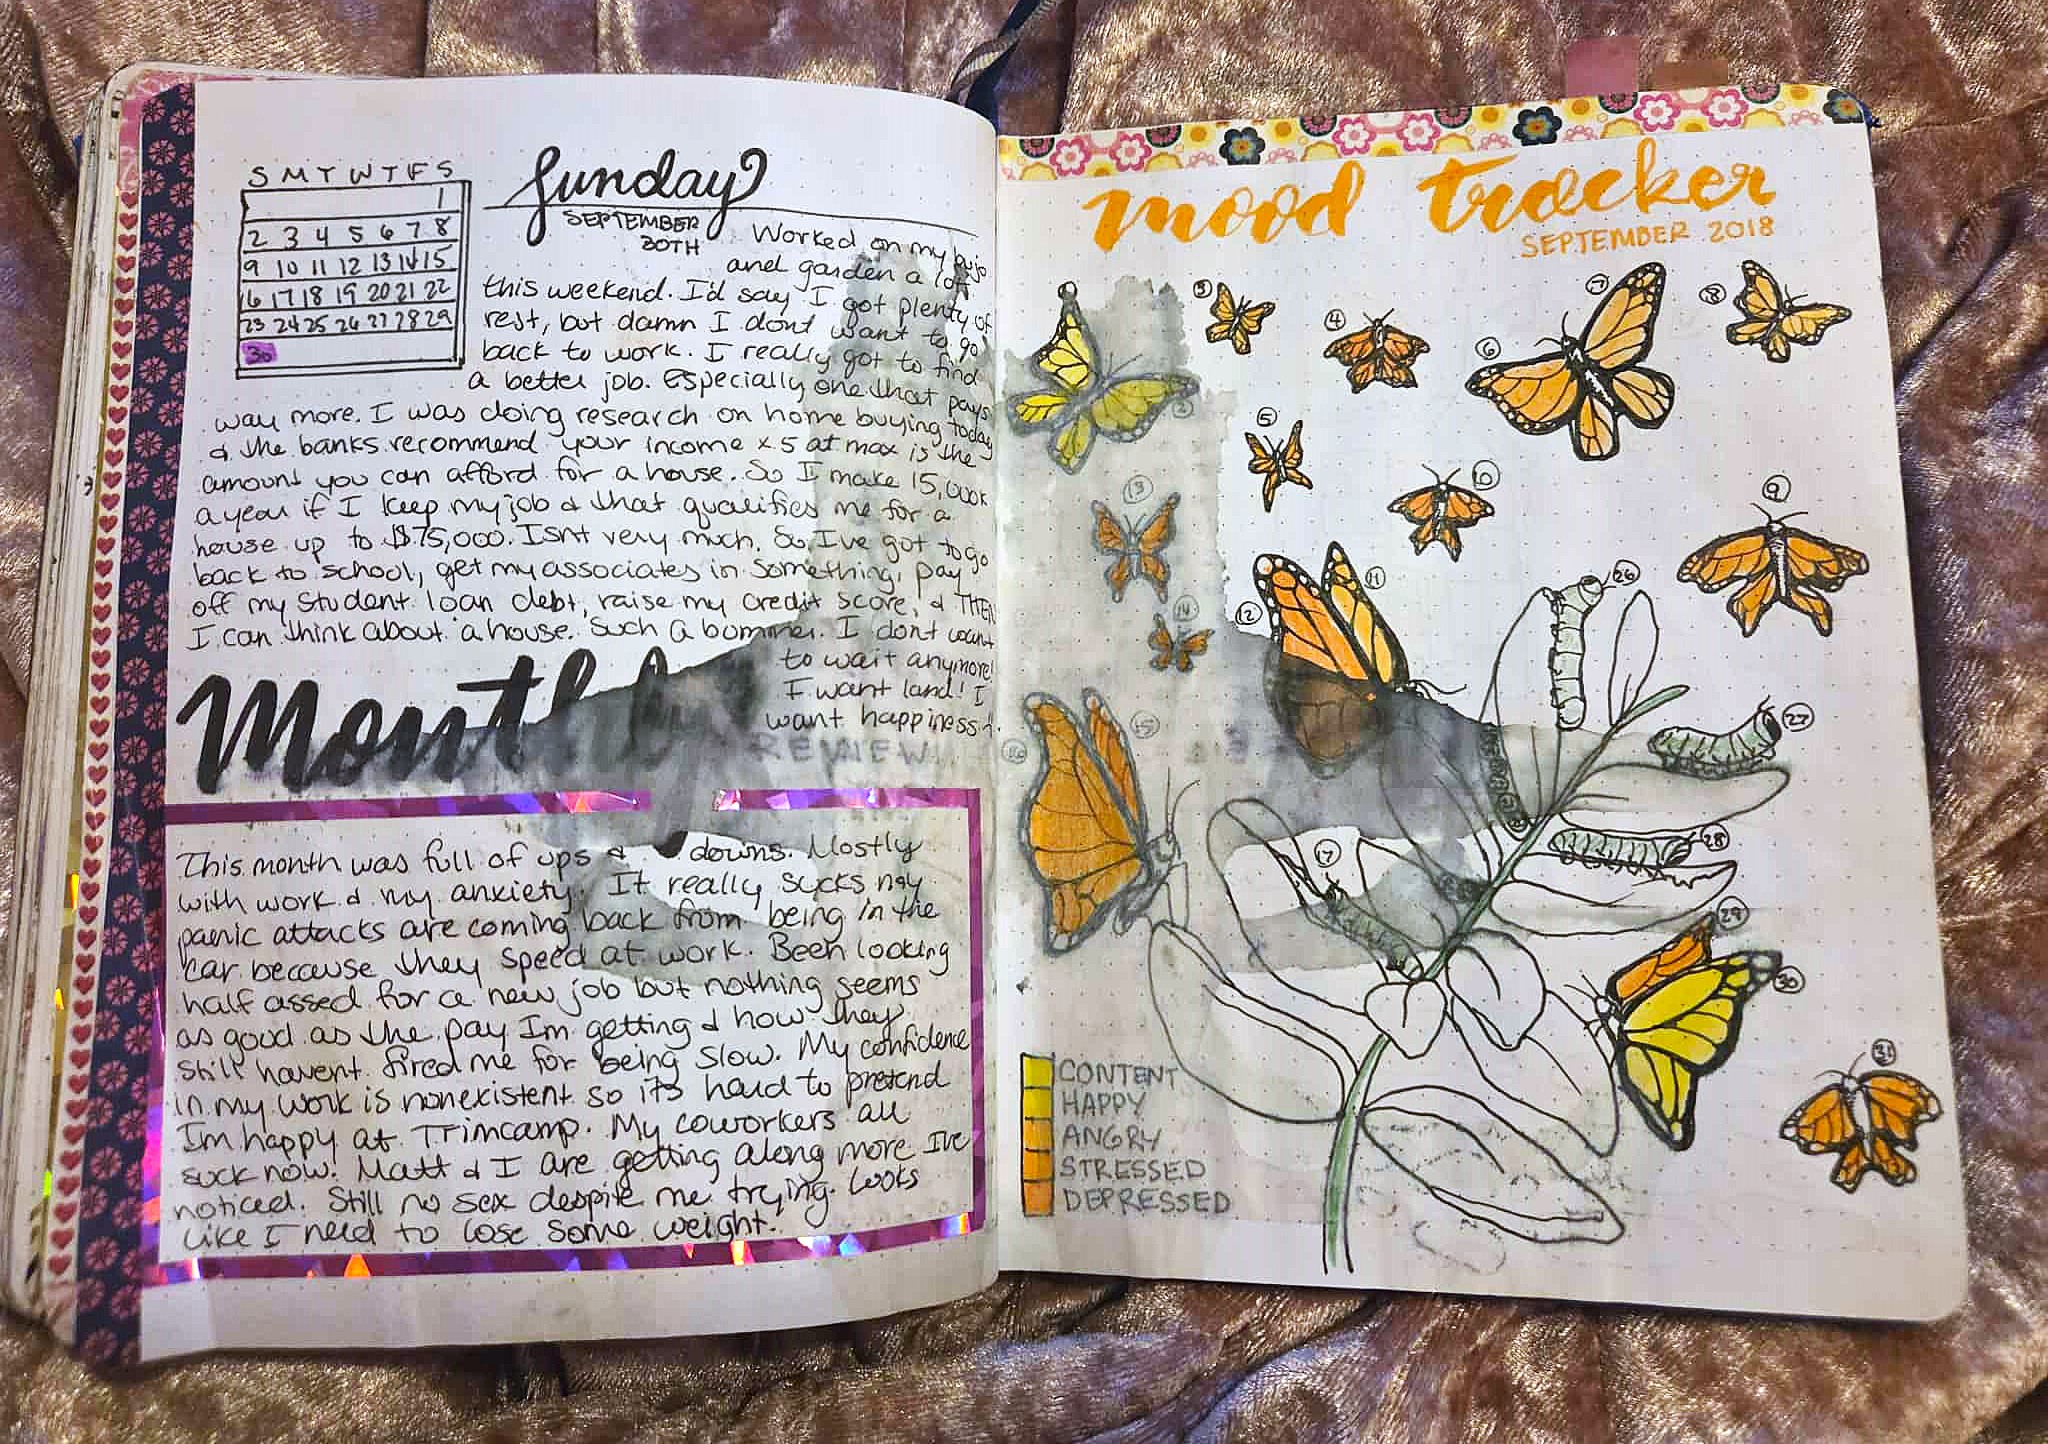 S M T W T F S
1
2 3 4 5 6 7 8
9 10 11 12 13 14 15
16 17 18 19 20 21 22
23 24 25 26 27 28 29
30
Sunday
SEPTEMBER
30TH
Worked on my bujo
and garden a lot
this weekend. I'd say I got plenty of
rest, but damn I dont want to go
back to work. I really got to find
a better job. Especially one that pays
way more. I was doing research on home buying today
& the banks recommend your income x 5 at max is the
amount you can afford for a house. So I make 15,000k
a year if I keep my job & that qualifies me for a
house up to $75,000. Isnt very much. So I've got to go
back to school, get my associates in something, pay
off my student loan debt, raise my credit score, & THEN
I can think about a house. Such a bummer. I dont want
to wait anymore!
I want land! I
want happiness!
Month
REVIEW
This month was full of ups & downs. Mostly
with work & my anxiety. It really sucks my
panic attacks are coming back from being in the
car because they speed at work. Been looking
half assed for a new job but nothing seems
as good as the pay Im getting & how they
still havent fired me for being slow. My confidence
in my work is nonexistent so its hard to pretend
Im happy at Trimcamp. My coworkers all
suck now. Matt & I are getting along more I've
noticed. Still no sex despite me trying. Looks
like I need to lose some weight.
mood tracker
SEPTEMBER 2018
2
3
4
5
6
7
8
9
10
11
12
13
14
15
16
17
26
27
28
29
30
31
CONTENT
HAPPY
ANGRY
STRESSED
DEPRESSED